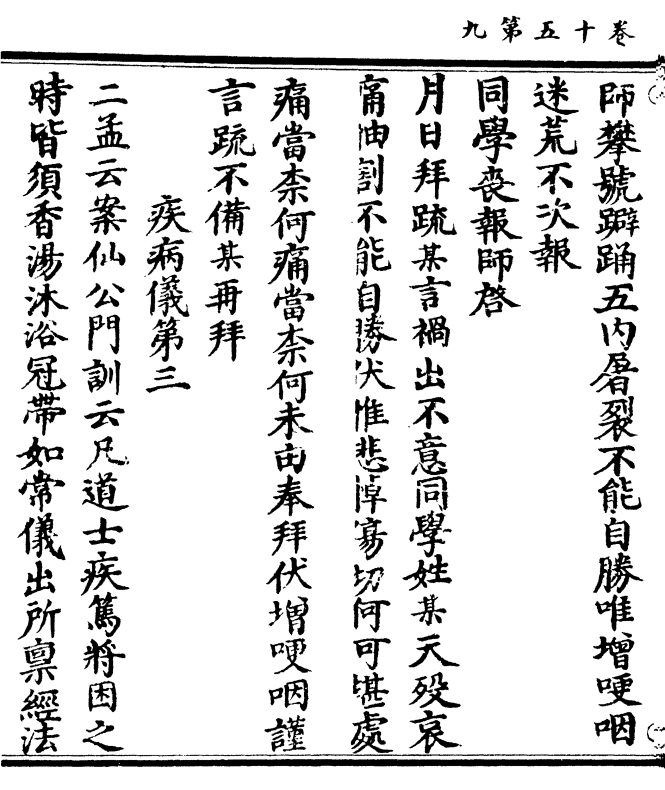 卷十五第九
師攀號躃踊五內屠裂不能自勝唯增哽咽
迷荒不次報
同學喪報師啓
月日拜疏某言禍出不意同學姓某夭殁哀
痛抽割不能自勝伏惟悲悼寡切何可堪處
痛當柰何痛當柰何未由奉拜伏增哽咽謹
言疏不備某再拜
疾病儀第三
二孟云案仙公門訓云凡道士疾篤將困之
時皆須香湯沐浴冠帶如常儀出所稟經法